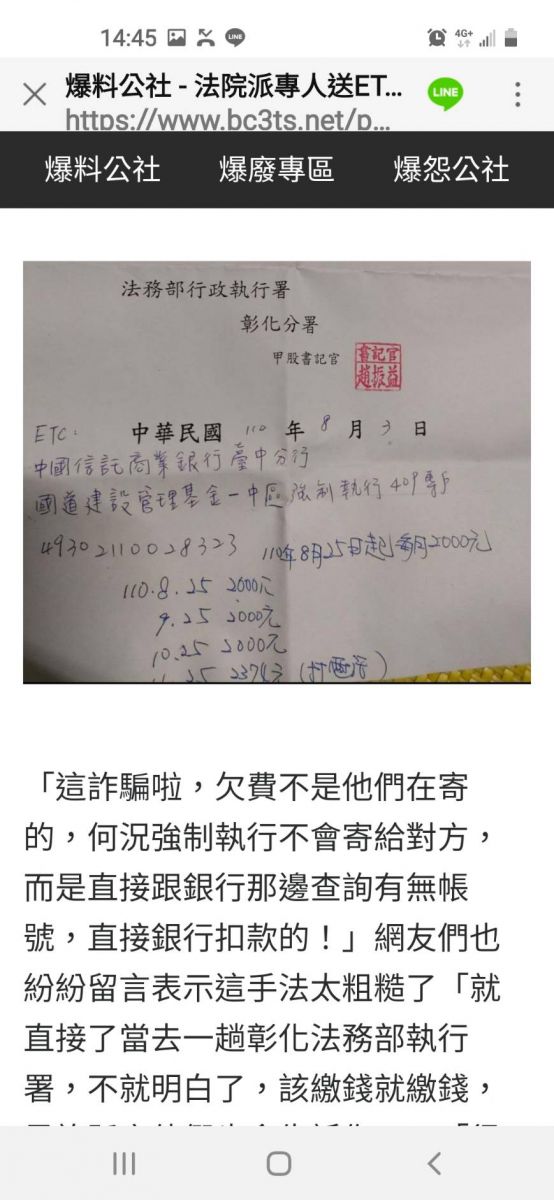 14:45
LINE
4G+
爆料公社 - 法院派專人送ET...
LINE
https://www.bc3ts.net/p...
爆料公社 爆廢專區 爆怨公社
法務部行政執行署
彰化分署
甲股書記官
書記官
趙振益
ETC:
中華民國 110 年 8 月 3 日
中國信託商業銀行臺中分行
國道建設管理基金一中區強制執行409專戶
49302110028323 110年8月25日起每月2000元
110.8.25 2000元
9.25 2000元
10.25 2000元
.25 2374元
「這詐騙啦，欠費不是他們在寄
的，何況強制執行不會寄給對方，
而是直接跟銀行那邊查詢有無帳
號，直接銀行扣款的！」網友們也
紛紛留言表示這手法太粗糙了「就
直接了當去一趟彰化法務部執行
署，不就明白了，該繳錢就繳錢，